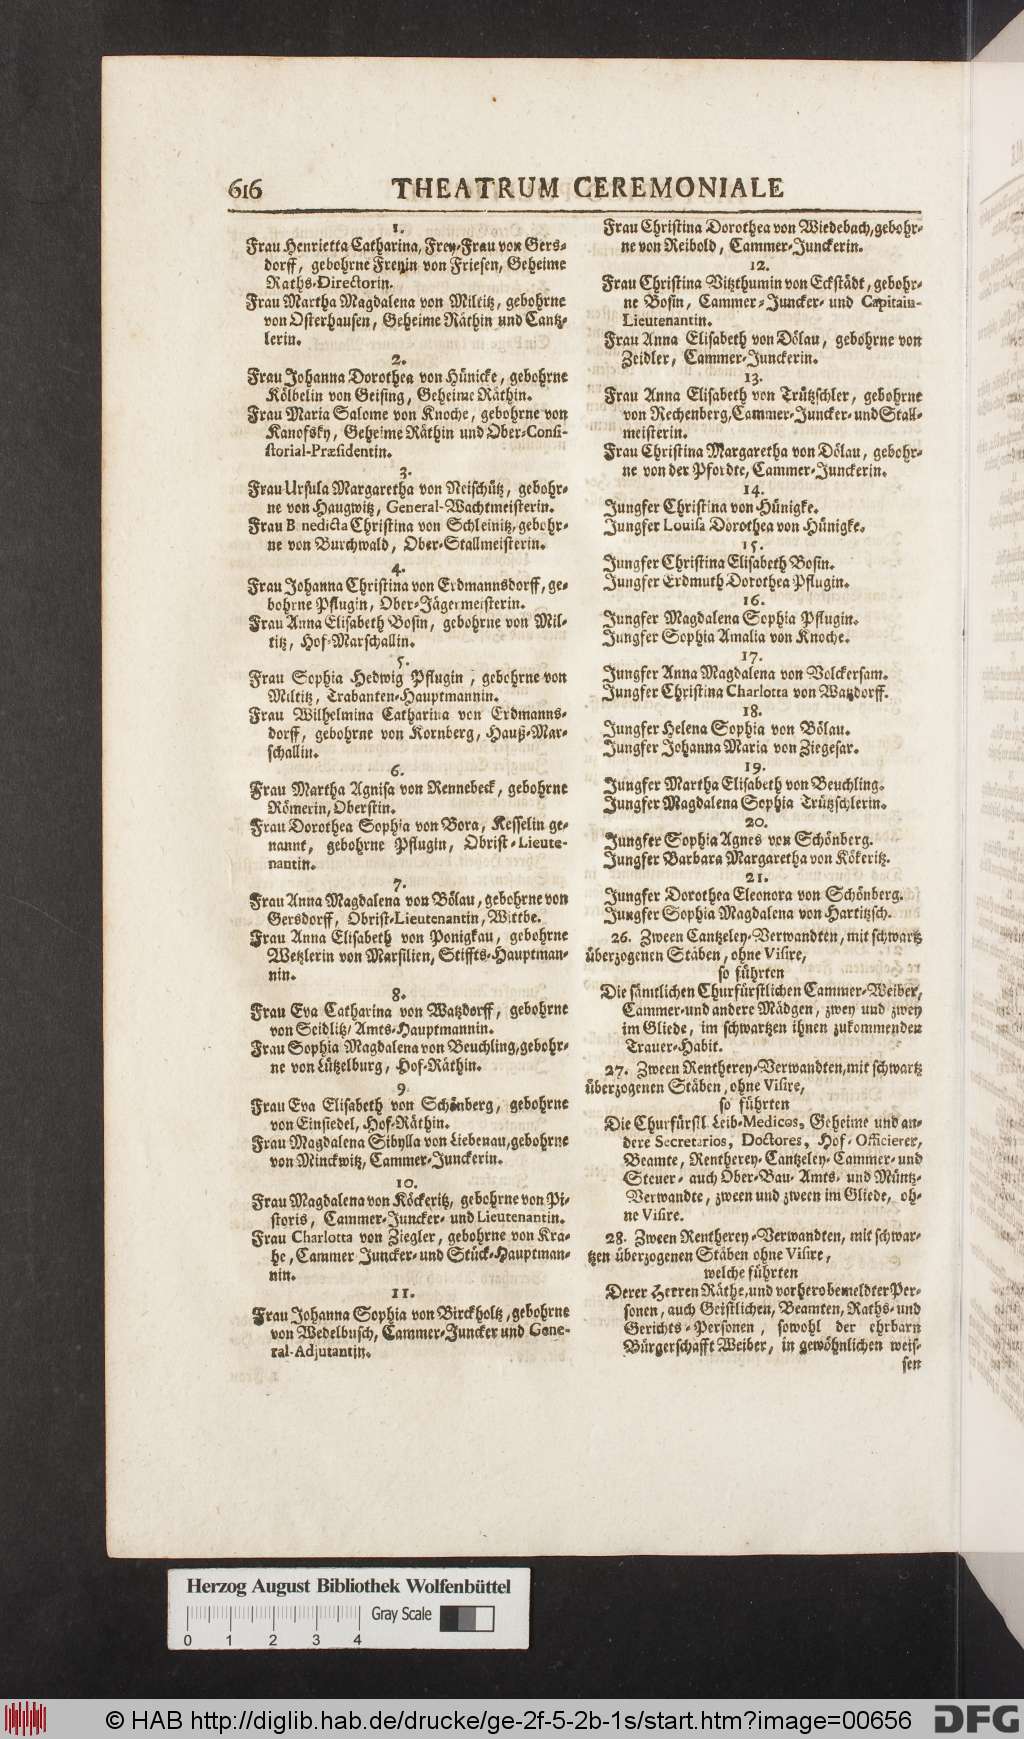 616 THEATRUM CEREMONIALE
1.
Frau Henrietta Catharina, Frey-Frau von Gers-
dorff, gebohrne Freyin von Friesen, Geheime
Raths-Directorin.
Frau Martha Magdalena von Miltitz, gebohrne
von Osterhausen, Geheime Räthin und Cantz-
lerin.
2.
Frau Johanna Dorothea von Hünicke, gebohrne
Kölbelin von Geising, Geheime Räthin.
Frau Maria Salome von Knoche, gebohrne von
Kanofsky, Geheime Räthin und Ober-Consi-
storial-Præsidentin.
3.
Frau Ursula Margaretha von Neischütz, gebohr-
ne von Haugwitz, General-Wachtmeisterin.
Frau B nedicta Christina von Schleinitz, gebohr-
ne von Burchwald, Ober-Stallmeisterin.
4.
Frau Johanna Christina von Erdmannsdorff, ge-
bohrne Pflugin, Ober-Jägermeisterin.
Frau Anna Elisabeth Bosin, gebohrne von Mil-
titz, Hof-Marschallin.
5.
Frau Sophia Hedwig Pflugin, gebohrne von
Miltitz, Trabanten-Hauptmannin.
Frau Wilhelmina Catharina von Erdmanns-
dorff, gebohrne von Kornberg, Hauß-Mar-
schallin.
6.
Frau Martha Agnisa von Rennebeck, gebohrne
Römerin, Oberstin.
Frau Dorothea Sophia von Bora, Kesselin ge-
nannt, gebohrne Pflugin, Obrist-Lieute-
nantin.
7.
Frau Anna Magdalena von Bölau, gebohrne von
Gersdorff, Obrist-Lieutenantin, Wittbe.
Frau Anna Elisabeth von Ponigkau, gebohrne
Wetzlerin von Marsilien, Stiffts-Hauptman-
nin.
8.
Frau Eva Catharina von Watzdorff, gebohrne
von Seidlitz/ Amts-Hauptmannin.
Frau Sophia Magdalena von Beuchling, gebohr-
ne von Lützelburg, Hof-Räthin.
9.
Frau Eva Elisabeth von Schönberg, gebohrne
von Einsiedel, Hof-Räthin.
Frau Magdalena Sibylla von Liebenau, gebohrne
von Minckwitz, Cammer-Junckerin.
10.
Frau Magdalena von Köckeritz, gebohrne von Pi-
storis, Cammer-Juncker- und Lieutenantin.
Frau Charlotta von Ziegler, gebohrne von Kra-
he, Cammer Juncker- und Stück-Hauptman-
nin.
11.
Frau Johanna Sophia von Birckholtz, gebohrne
von Wedelbusch, Cammer-Juncker und Gene-
ral-Adjutantin.
Frau Christina Dorothea von Wiedebach, gebohr-
ne von Reibold, Cammer-Junckerin.
12.
Frau Christina Vitzthumin von Eckstädt, gebohr-
ne Bosin, Cammer-Juncker- und Capitain-
Lieutenantin.
Frau Anna Elisabeth von Dölau, gebohrne von
Zeidler, Cammer-Junckerin.
13.
Frau Anna Elisabeth von Trützschler, gebohrne
von Rechenberg, Cammer-Juncker- und Stall-
meisterin.
Frau Christina Margaretha von Dölau, gebohr-
ne von der Pfordte, Cammer-Junckerin.
14.
Jungfer Christina von Hünigke.
Jungfer Louisa Dorothea von Hünigke.
15.
Jungfer Christina Elisabeth Bosin.
Jungfer Erdmuth Dorothea Pflugin.
16.
Jungfer Magdalena Sophia Pflugin.
Jungfer Sophia Amalia von Knoche.
17.
Jungfer Anna Magdalena von Volckersam.
Jungfer Christina Charlotta von Watzdorff.
18.
Jungfer Helena Sophia von Bölau.
Jungfer Johanna Maria von Ziegesar.
19.
Jungfer Martha Elisabeth von Beuchling.
Jungfer Magdalena Sophia Trützschlerin.
20.
Jungfer Sophia Agnes von Schönberg.
Jungfer Barbara Margaretha von Kökeritz.
21.
Jungfer Dorothea Eleonora von Schönberg.
Jungfer Sophia Magdalena von Hartitzsch.
26. Zween Cantzeley-Verwandten, mit schwartz
überzogenen Stäben, ohne Visire,
so führten
Die sämtlichen Churfürstlichen Cammer-Weiber,
Cammer- und andere Mädgen, zwey und zwey
im Gliede, im schwartzen ihnen zukommenden
Trauer-Habit.
27. Zween Rentherey-Verwandten, mit schwartz
überzogenen Stäben, ohne Visire,
so führten
Die Churfürstl. Leib-Medicos, Geheime und an-
dere Secretarios, Doctores, Hof-Officierer,
Beamte, Rentherey- Cantzeley- Cammer- und
Steuer- auch Ober-Bau- Amts- und Müntz-
Verwandte, zween und zween im Gliede, oh-
ne Visire.
28. Zween Rentherey-Verwandten, mit schwar-
tzen überzogenen Stäben ohne Visire,
welche führten
Derer Herren Räthe, und vorhero bemeldter Per-
sonen, auch Geistlichen, Beamten, Raths- und
Gerichts-Personen, sowohl der ehrbarn
Bürgerschafft Weiber, in gewöhnlichen weis-
sen
Herzog August Bibliothek Wolfenbüttel
Gray Scale
0 1 2 3 4
© HAB http://diglib.hab.de/drucke/ge-2f-5-2b-1s/start.htm?image=00656 DFG